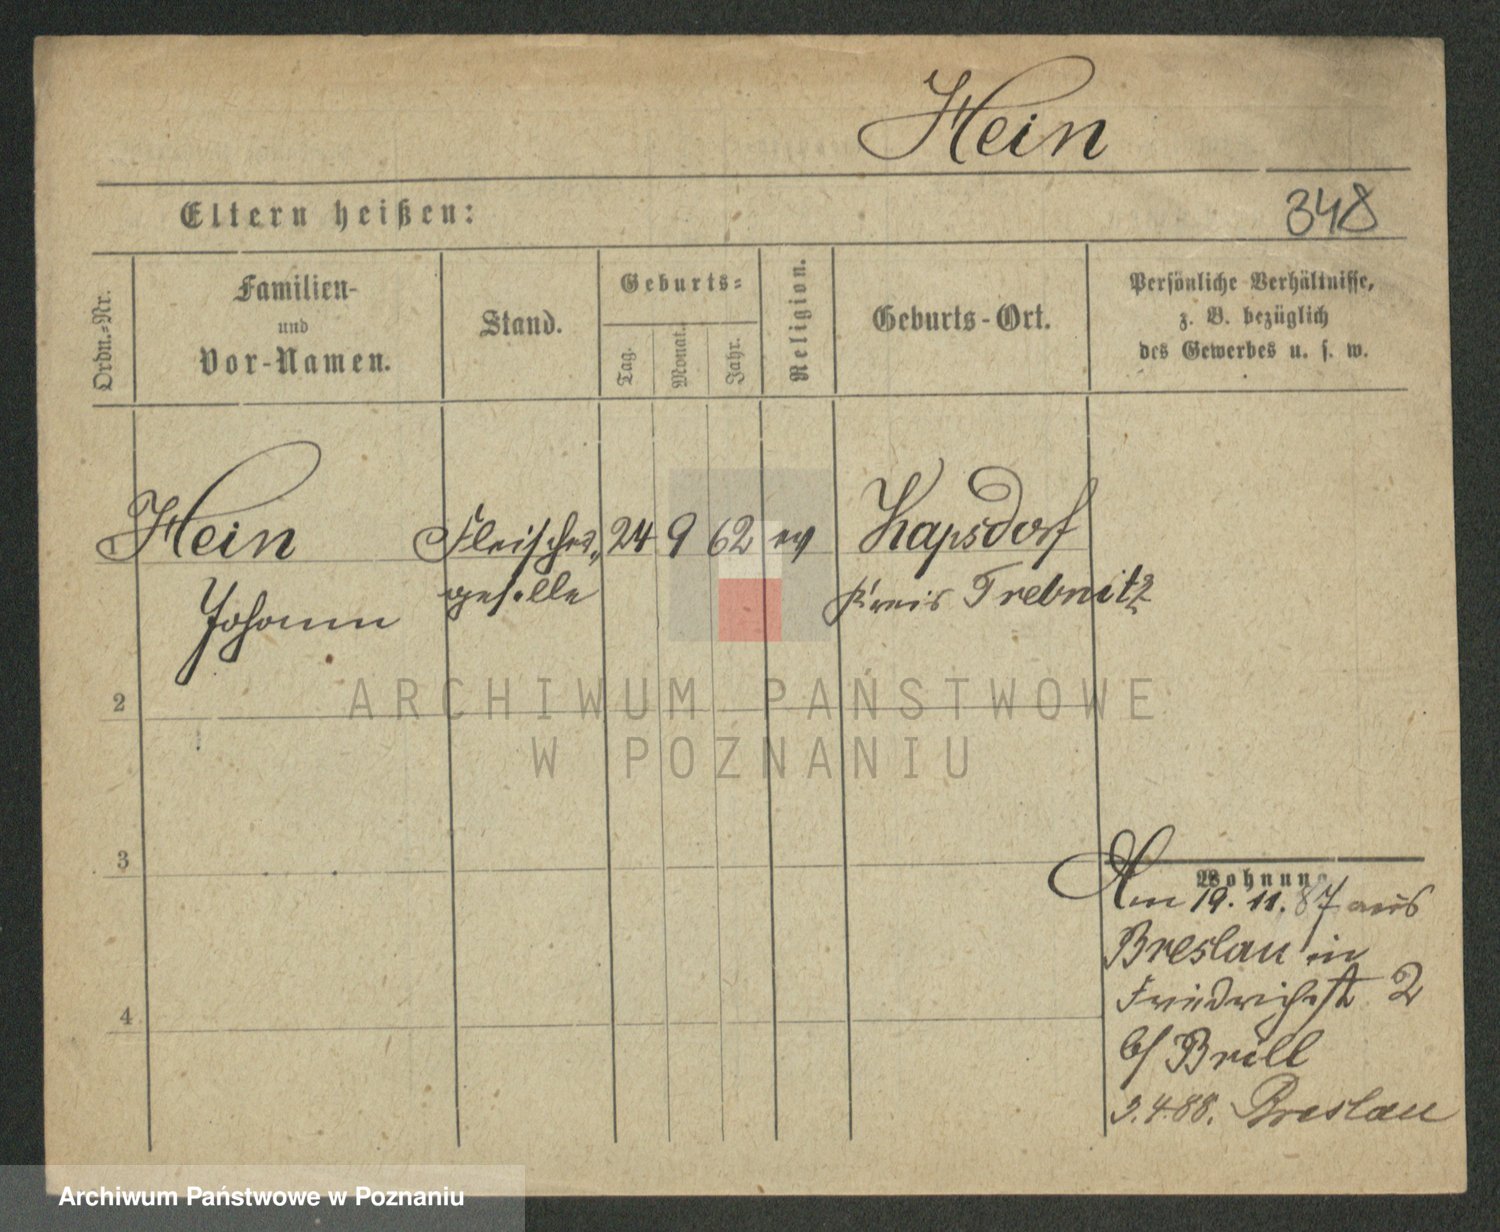 Hein
Eltern heißen:
348
Ordn.-Nr.
Familien-
und
Vor-Namen.
Stand.
Geburts-
Tag.
Monat.
Jahr.
Religion.
Geburts-Ort.
Persönliche Verhältnisse,
z. B. bezüglich
des Gewerbes u. s. w.
Hein Fleischer- 24 9 62 ev Kapsdorf
Johann geselle Kreis Trebnitz
2
ARCHIWUM PAŃSTWOWE
W POZNANIU
3
Wohnung
Am 19. 11. 87 aus
Breslau in
Friedrichst 2
b/ Brill
3.4.88. Breslau
4
Archiwum Państwowe w Poznaniu